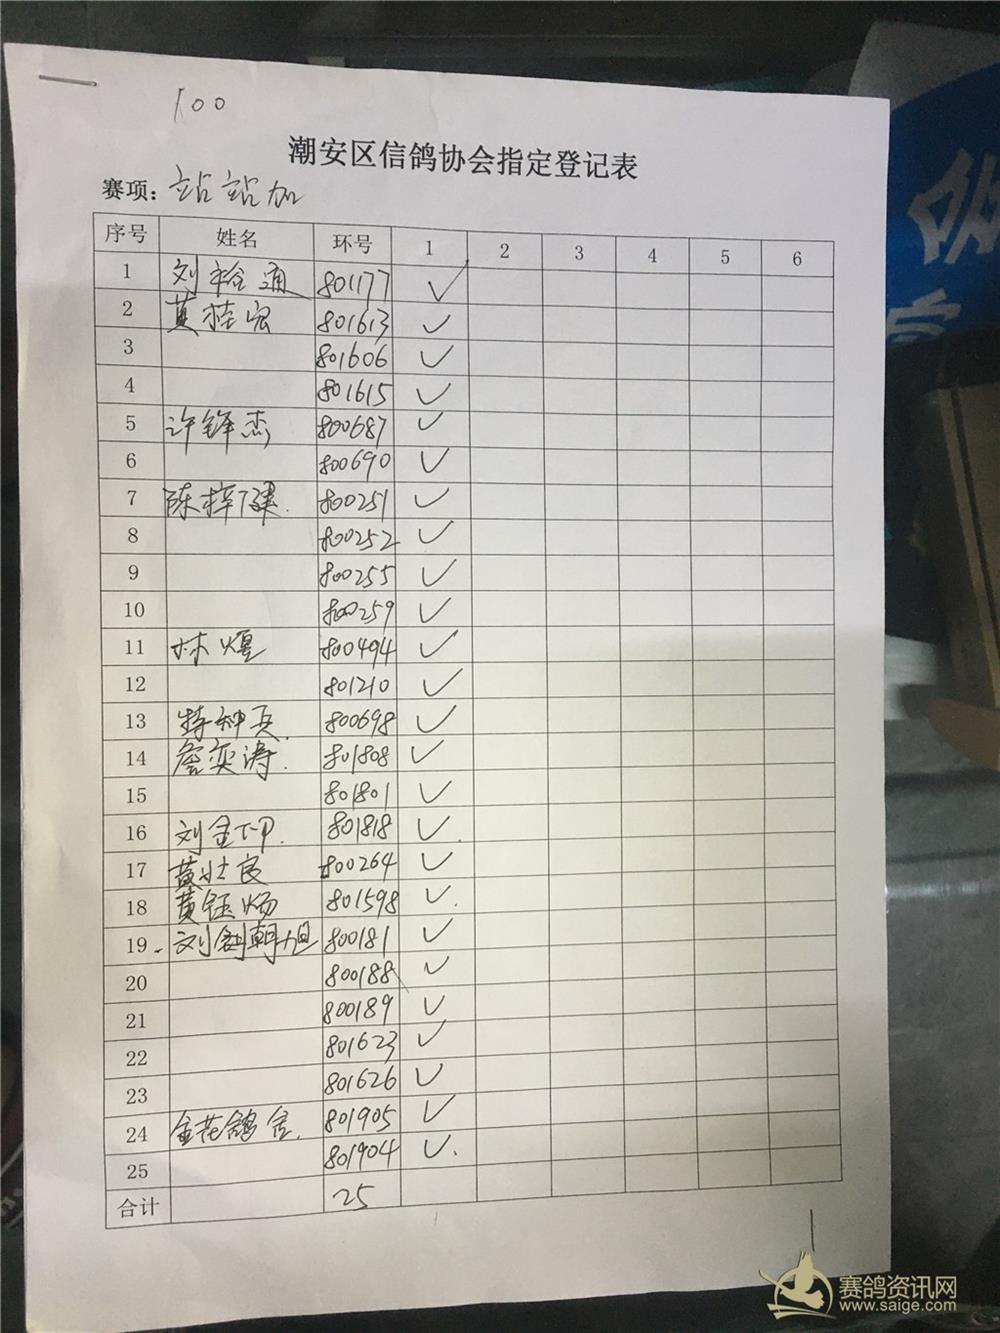 100
潮安区信鸽协会指定登记表
赛项：站站加
序号 姓名 环号 1 2 3 4 5 6
1 刘裕通 801177 ✓
2 黄桂宏 801613 ✓
3 801606 ✓
4 801615 ✓
5 许锋杰 800687 ✓
6 800690 ✓
7 陈梓健. 800251 ✓
8 800252 ✓
9 800255 ✓
10 800259 ✓
11 林煜 800494 ✓
12 801210 ✓
13 特种兵. 800698 ✓
14 詹奕涛. 801808 ✓
15 801801 ✓
16 刘金 801818 ✓
17 黄壮良 800264 ✓
18 黄钰炀 801598 ✓.
19 刘剑朝旭 800181 ✓
20 800188 ✓
21 800189 ✓
22 801623 ✓
23 801626 ✓
24 金花鸽舍. 801905 ✓
25 801904 ✓.
合计 25
1
赛鸽资讯网
www.saige.com